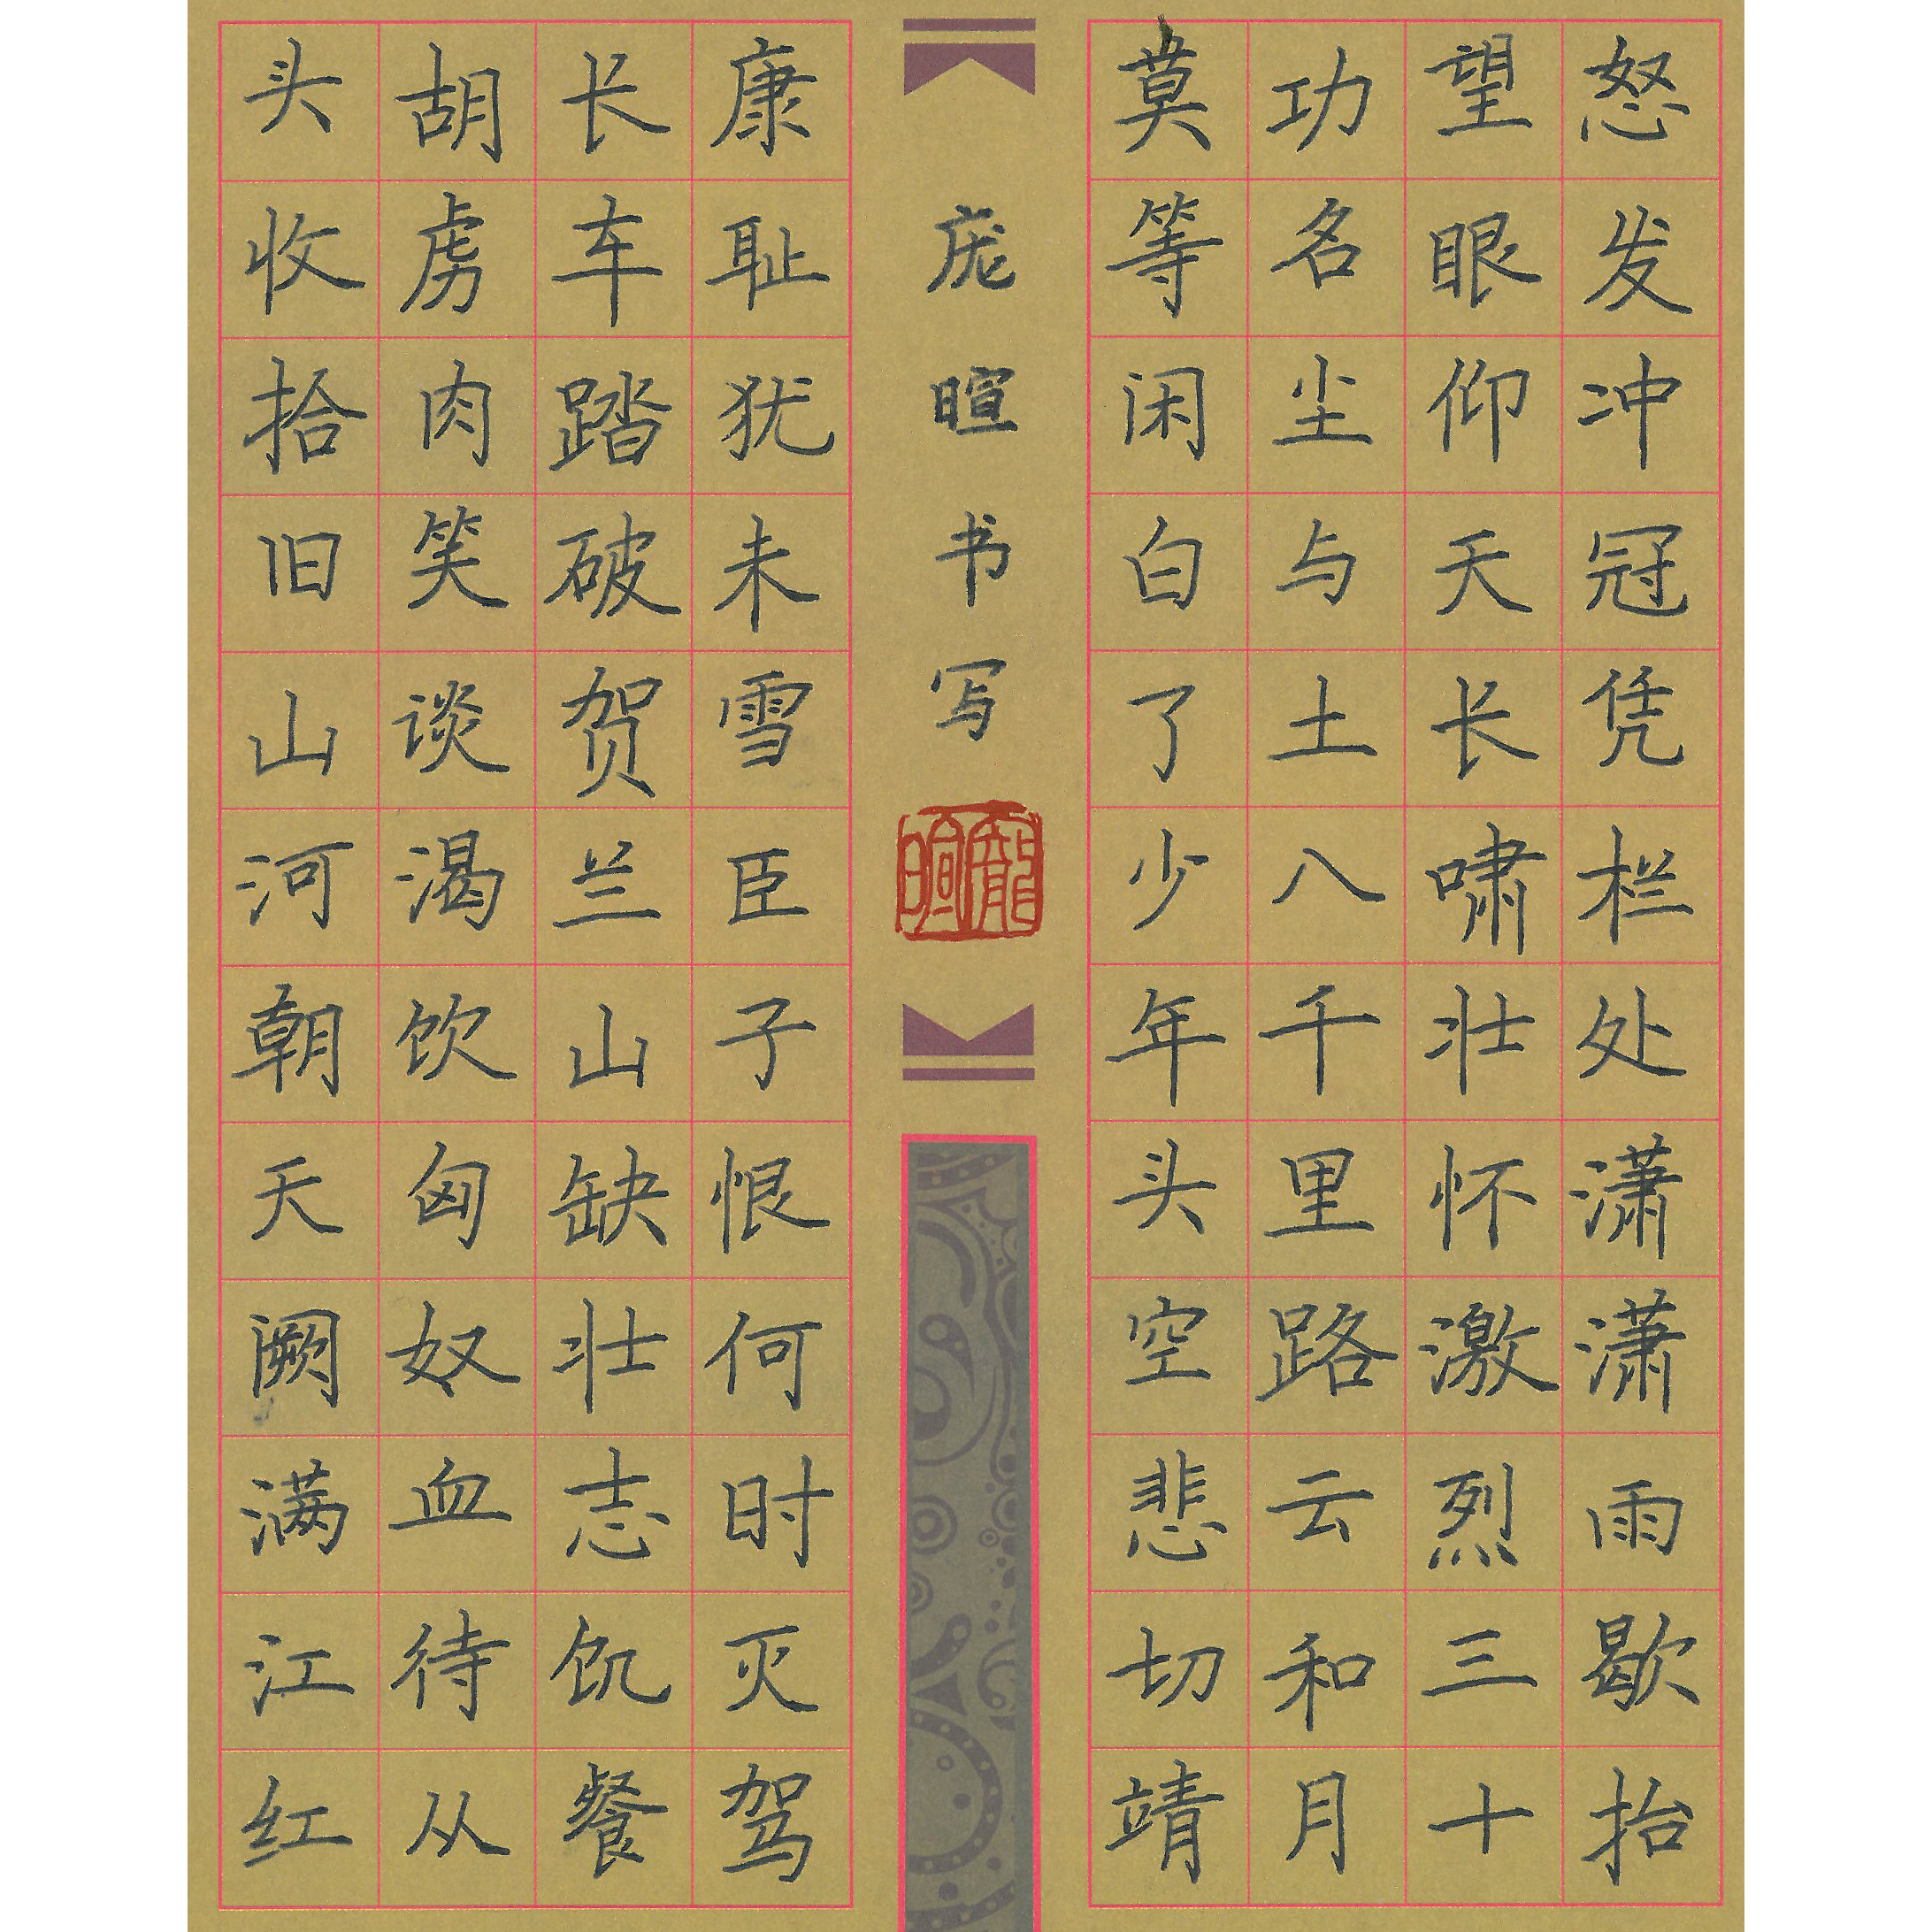 怒发冲冠凭栏处潇潇雨歇抬
望眼仰天长啸壮怀激烈三十
功名尘与土八千里路云和月
莫等闲白了少年头空悲切靖
庞暄书写
庞暄
康耻犹未雪臣子恨何时灭驾
长车踏破贺兰山缺壮志饥餐
胡虏肉笑谈渴饮匈奴血待从
头收拾旧山河朝天阙满江红